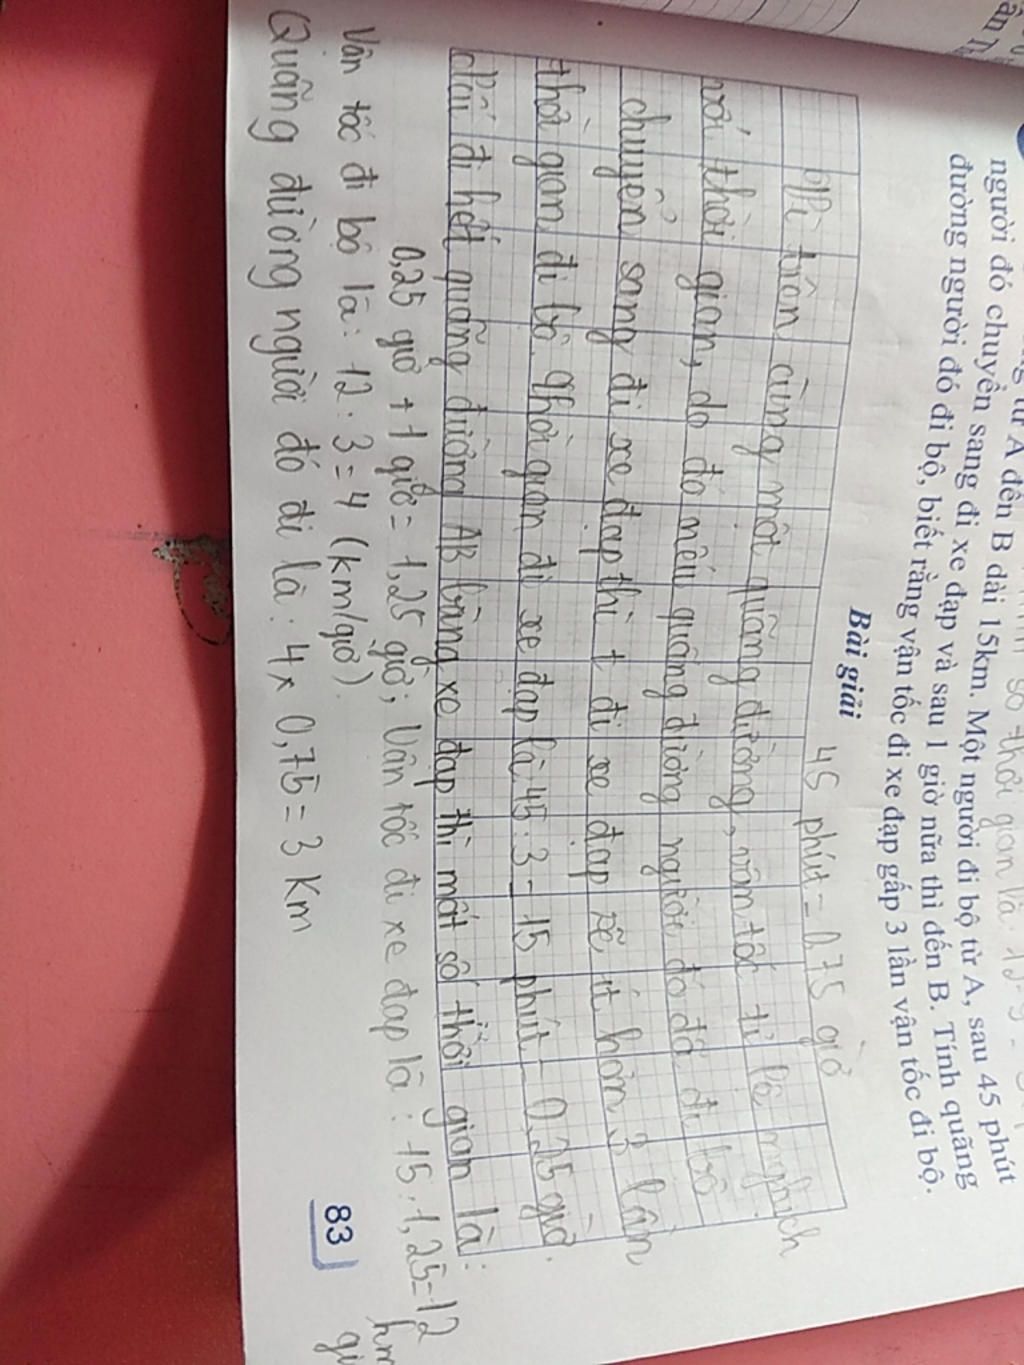 từ A đến B dài 15km. Một người đi bộ từ A, sau 45 phút
người đó chuyển sang đi xe đạp và sau 1 giờ nữa thì đến B. Tính quãng
đường người đó đi bộ, biết rằng vận tốc đi xe đạp gấp 3 lần vận tốc đi bộ.
Bài giải
45 phút = 0,75 giờ
Vì trên cùng một quãng đường, vận tốc tỉ lệ nghịch
với thời gian, do đó nếu quãng đường người đó đã đi bộ
chuyển sang đi xe đạp thì t đi xe đạp sẽ ít hơn 3 lần
thời gian đi bộ. Thời gian đi xe đạp là: 45 : 3 = 15 phút = 0,25 giờ.
Nếu đi hết quãng đường AB bằng xe đạp thì mất số thời gian là:
0,25 giờ + 1 giờ = 1,25 giờ; Vận tốc đi xe đạp là: 15 : 1,25 = 12
km
Vân tốc đi bộ là: 12 : 3 = 4 (km/giờ)
Quãng đường người đó đi là: 4 x 0,75 = 3 Km
83